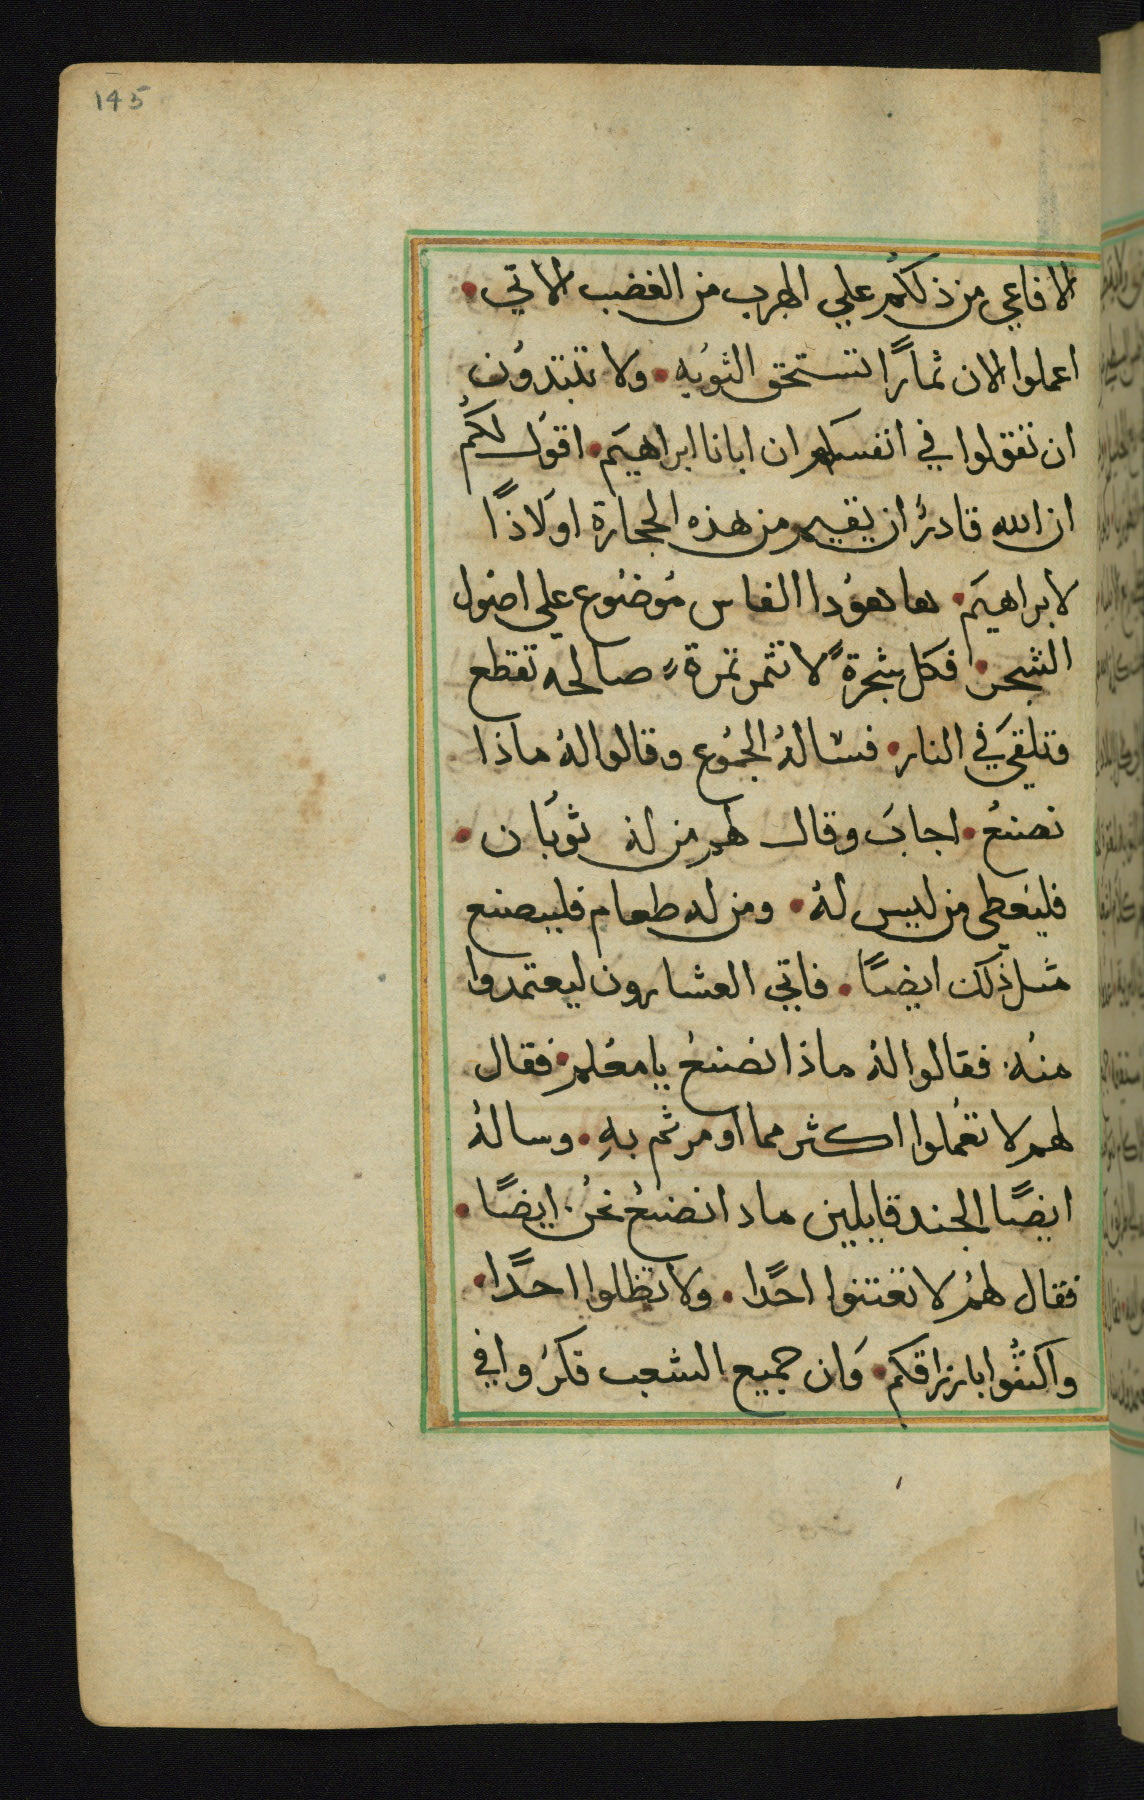 145
الافاعي من ذلكم علي الهرب من الغضب الاتي •
اعملوا الان ثمارًا تستحق التوبه • ولا تبتدون
ان تقولوا في انفسكم ان ابانا ابراهيم • اقول لكم
ان الله قادرٌ ان يقيم من هذه الحجارة اولادًا
لابراهيم • ها هوذا الفاس موضوع علي اصول
الشجر • فكل شجرةً لا تثمر ثمرة صالحه تقطع
وتلقي في النار • فساله الجموع وقالوا له ماذا
نصنع • اجاب وقال لهم من له ثوبان •
فليعطي من ليس له • ومن له طعام فليصنع
مثل ذلك ايضًا • فاتي العشارون ليعتمدوا
منه • فقالوا له ماذا نصنع يا معلم • فقال
لهم لا تعملوا اكثر مما اومرتم به • وساله
ايضًا الجند قايلين ماذا نصنع نحن ايضًا •
فقال لهم لا تعتنوا احدًا • ولا تظلوا احدًا •
واكتفوا بارزاقكم • وان جميع الشعب فكروا في